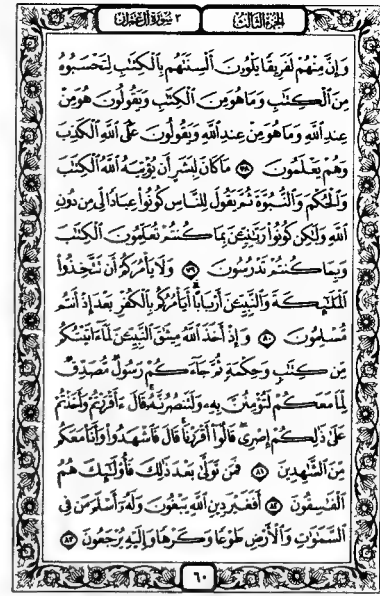 الجزء الثالث ٣ سورة آل عمران
وَإِنَّ مِنْهُمْ لَفَرِيقًا يَلْوُۥنَ أَلْسِنَتَهُم بِٱلْكِتَٰبِ لِتَحْسَبُوهُ
مِنَ ٱلْكِتَٰبِ وَمَا هُوَ مِنَ ٱلْكِتَٰبِ وَيَقُولُونَ هُوَ مِنْ
عِندِ ٱللَّهِ وَمَا هُوَ مِنْ عِندِ ٱللَّهِ وَيَقُولُونَ عَلَى ٱللَّهِ ٱلْكَذِبَ
وَهُمْ يَعْلَمُونَ ٧٨ مَا كَانَ لِبَشَرٍ أَن يُؤْتِيَهُ ٱللَّهُ ٱلْكِتَٰبَ
وَٱلْحُكْمَ وَٱلنُّبُوَّةَ ثُمَّ يَقُولَ لِلنَّاسِ كُونُوا۟ عِبَادًا لِّى مِن دُونِ
ٱللَّهِ وَلَٰكِن كُونُوا۟ رَبَّٰنِيِّۦنَ بِمَا كُنتُمْ تُعَلِّمُونَ ٱلْكِتَٰبَ
وَبِمَا كُنتُمْ تَدْرُسُونَ ٧٩ وَلَا يَأْمُرَكُمْ أَن تَتَّخِذُوا۟
ٱلْمَلَٰٓئِكَةَ وَٱلنَّبِيِّۦنَ أَرْبَابًا أَيَأْمُرُكُم بِٱلْكُفْرِ بَعْدَ إِذْ أَنتُم
مُّسْلِمُونَ ٨٠ وَإِذْ أَخَذَ ٱللَّهُ مِيثَٰقَ ٱلنَّبِيِّۦنَ لَمَآ ءَاتَيْتُكُم
مِّن كِتَٰبٍ وَحِكْمَةٍ ثُمَّ جَآءَكُمْ رَسُولٌ مُّصَدِّقٌ
لِّمَا مَعَكُمْ لَتُؤْمِنُنَّ بِهِۦ وَلَتَنصُرُنَّهُۥ قَالَ ءَأَقْرَرْتُمْ وَأَخَذْتُمْ
عَلَىٰ ذَٰلِكُمْ إِصْرِى قَالُوٓا۟ أَقْرَرْنَا قَالَ فَٱشْهَدُوا۟ وَأَنَا۠ مَعَكُم
مِّنَ ٱلشَّٰهِدِينَ ٨١ فَمَن تَوَلَّىٰ بَعْدَ ذَٰلِكَ فَأُو۟لَٰٓئِكَ هُمُ
ٱلْفَٰسِقُونَ ٨٢ أَفَغَيْرَ دِينِ ٱللَّهِ يَبْغُونَ وَلَهُۥٓ أَسْلَمَ مَن فِى
ٱلسَّمَٰوَٰتِ وَٱلْأَرْضِ طَوْعًا وَكَرْهًا وَإِلَيْهِ يُرْجَعُونَ ٨٣
٦٠